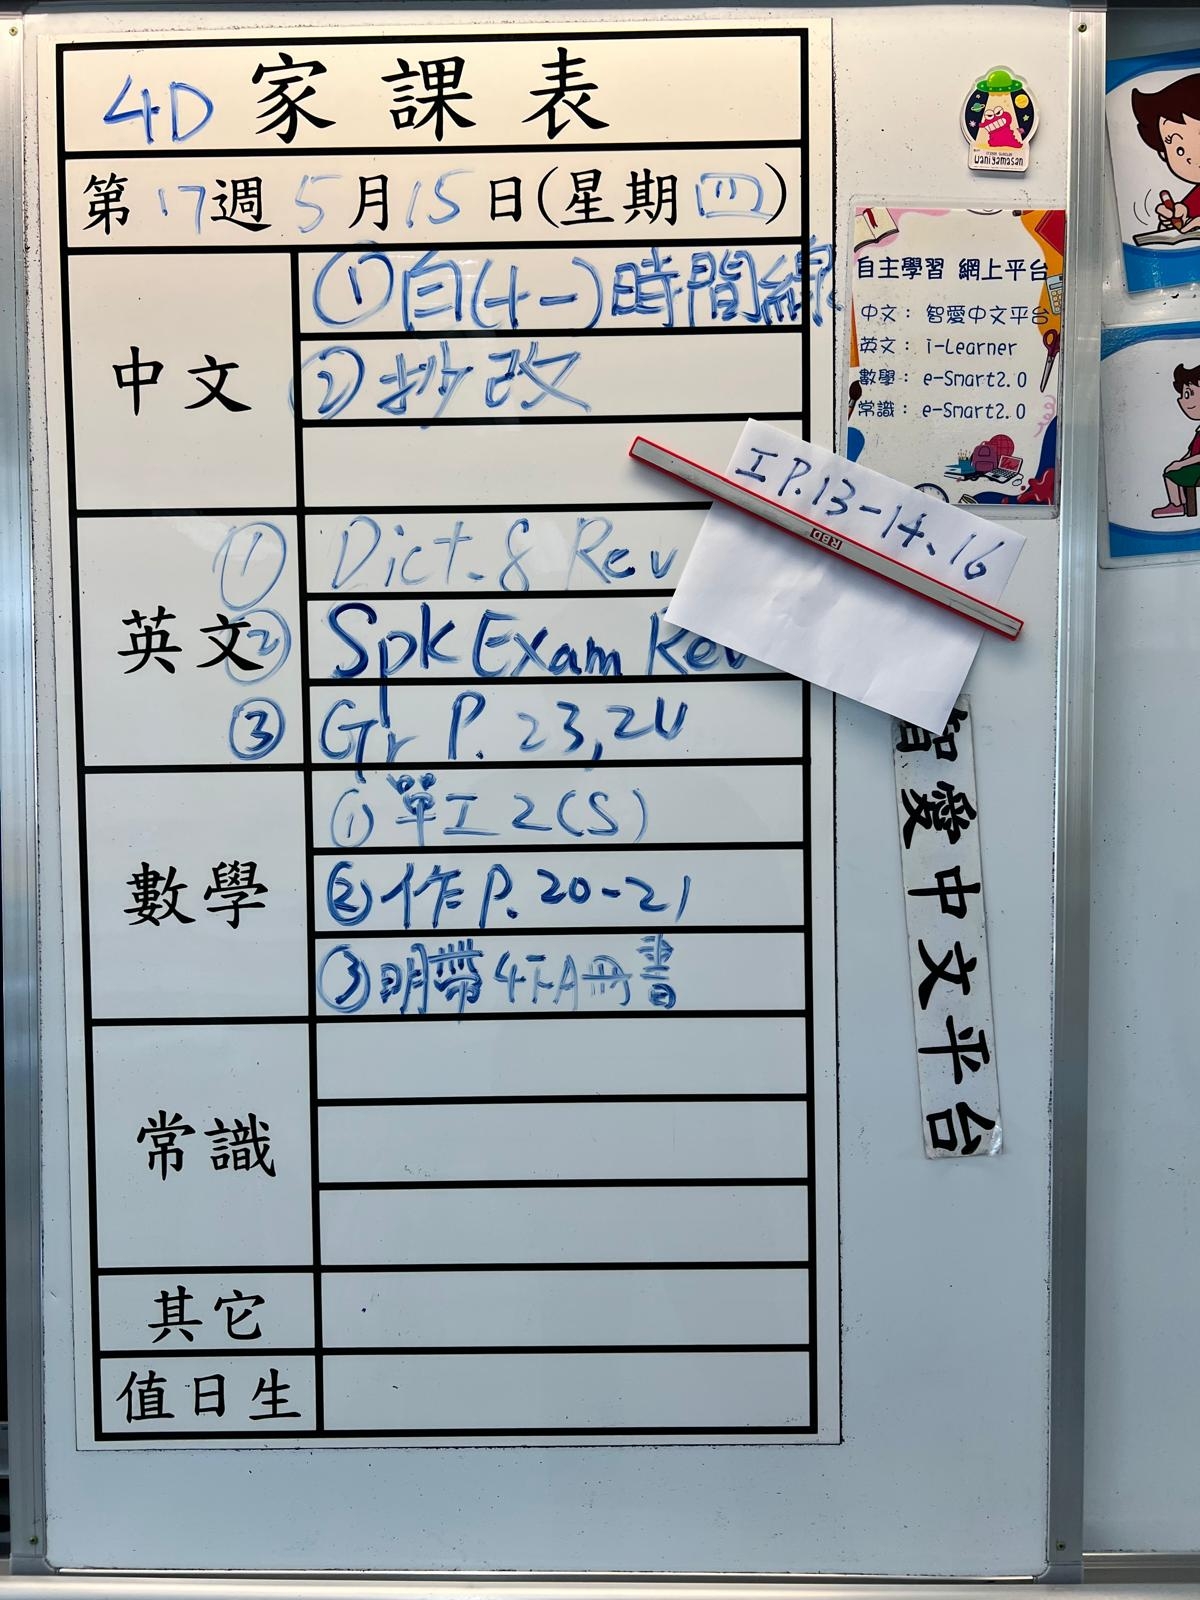 4D 家課表
第17週 5月15日(星期四)
中文
①自(十一)時間線
②抄改
英文
① Dict. 8 Rev
② Spk Exam Rev
③ Gr P. 23,24
數學
①單工2(S)
②作P.20-21
③明帶4下A冊書
常識
其它
值日生
工P.13-14、16
RED
uaniyamasan
自主學習 網上平台
中文：智愛中文平台
英文：i-Learner
數學：e-Smart2.0
常識：e-Smart2.0
智愛中文平台